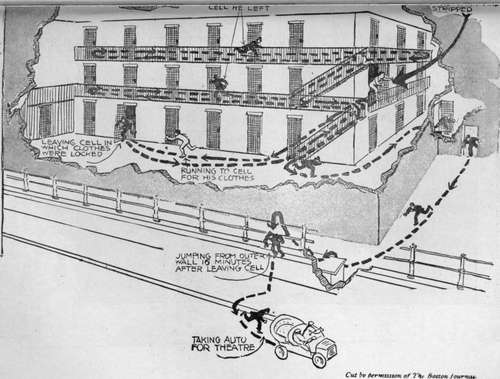 CELL HE LEFT
STRIPPED
LEAVING CELL IN
WHICH CLOTHES
WERE LOCKED
RUNNING TO CELL
FOR HIS CLOTHES
JUMPING FROM OUTER
WALL 16 MINUTES
AFTER LEAVING CELL
TAKING AUTO
FOR THEATRE
Cut by permission of The Boston Journal